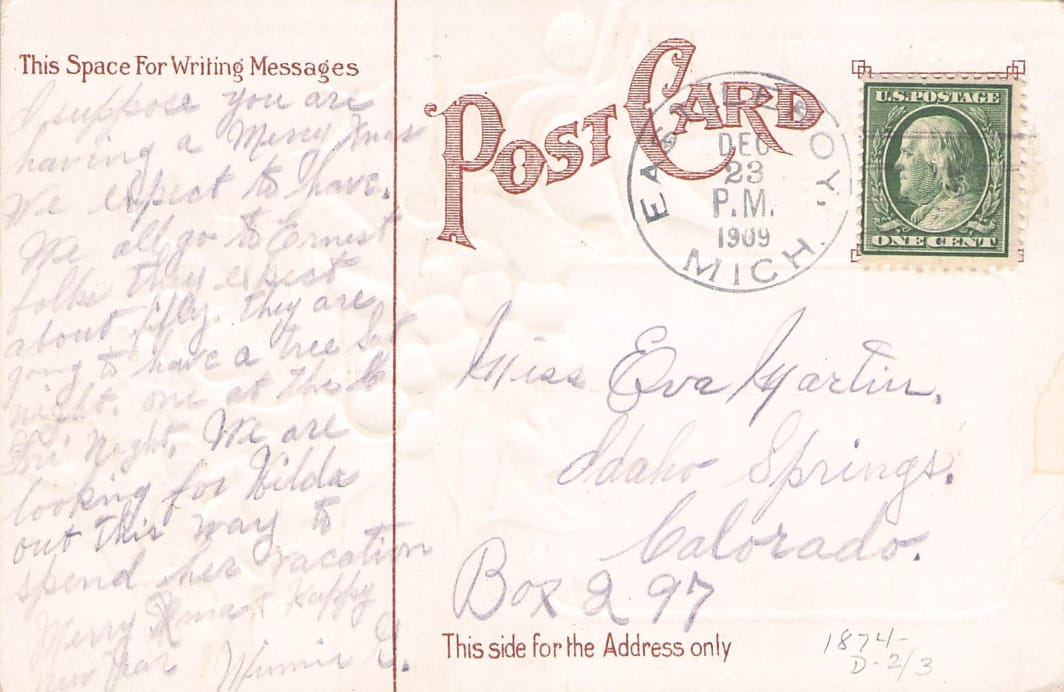 This Space For Writing Messages
I suppose you are
having a Merry Xmas
We expect to have.
We all go to Ernest
folks they expect
about fifty. they are
going to have a tree Sat
night. one at the
Fri. Night. We are
looking for Hilda
out this way to
spend her vacation
Merry Xmas & Happy
New Year Minnie E.
POST CARD
EAST LEROY,
DEC
23
P.M.
1909
MICH.
U.S. POSTAGE
ONE CENT
Miss Eva Martin.
Idaho Springs.
Colorado.
Box 297
This side for the Address only
1874-
D-2/3